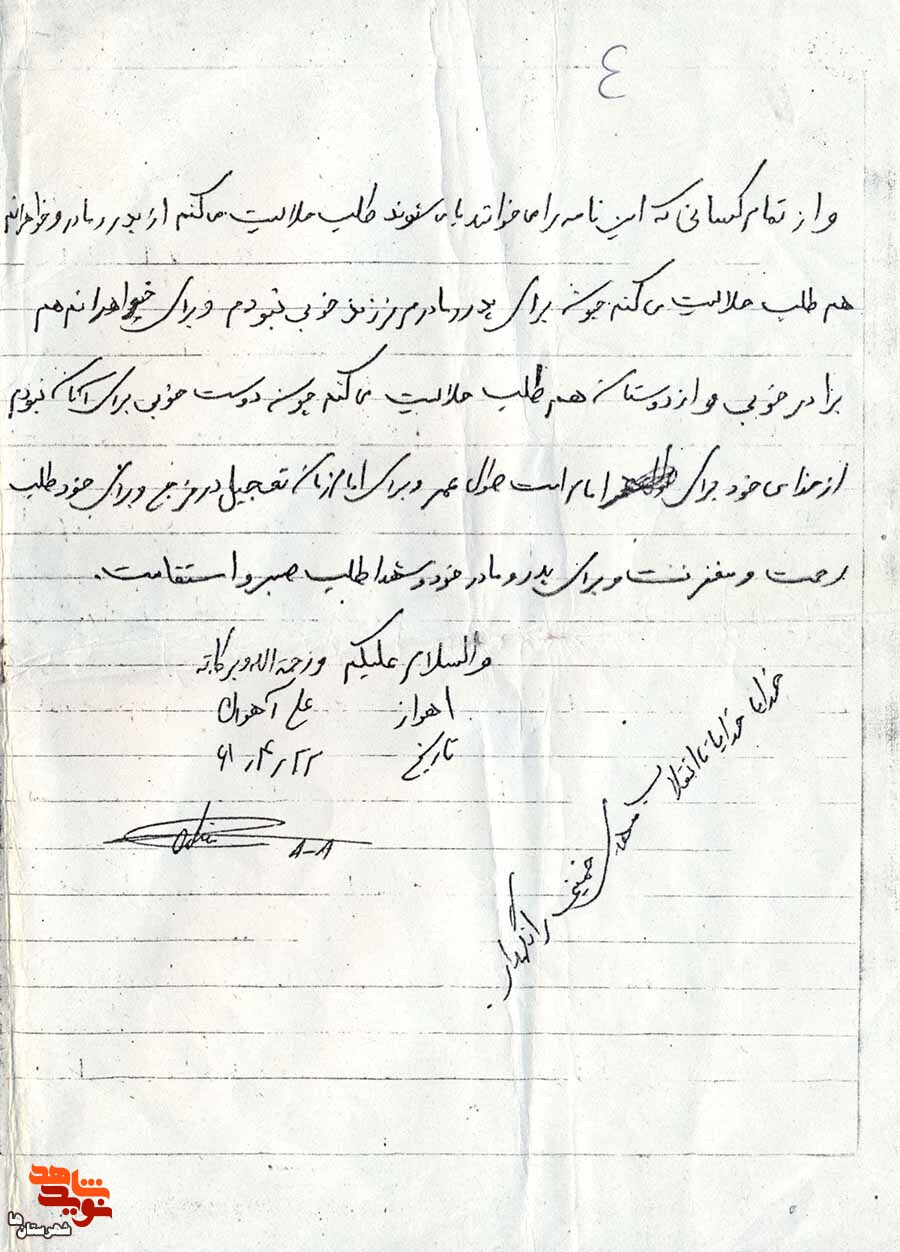 ٤
و از تمام کسانی که این نامه را می خوانند یا می شنوند طلب حلالیت می کنم از پدر و مادر و خواهرانم
هم طلب حلالیت می کنم چون برای پدر و مادرم فرزند خوبی نبودم و برای خواهرانم هم
برادر خوبی و از دوستان هم طلب حلالیت می کنم چون دوست خوبی برای آنان نبودم
از خدای خود برای امام امت طول عمر و برای امام زمان تعجیل در فرج و برای خود طلب
رحمت و مغفرت و برای پدر و مادر خود و شهدا طلب صبر و استقامت.
والسلام علیکم و رحمة الله و برکاته
اهواز علی آهوان
تاریخ ۶۱/۴/۲۲
A-A
خدایا خدایا تا انقلاب مهدی خمینی را نگهدار.
نوید شاهد
شهرستان ها